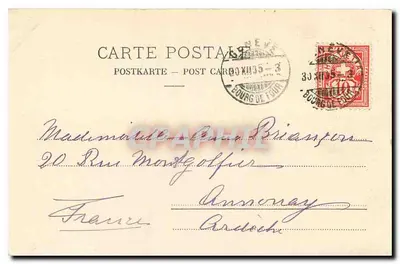 CARTE POSTALE
POSTKARTE — POST CARD
GENÈVE
BOURG DE FOUR
GENÈVE
BOURG DE FOUR
10
Mademoiselle Briançon
20 Rue Montgolfier
Annonay
Ardèche
France